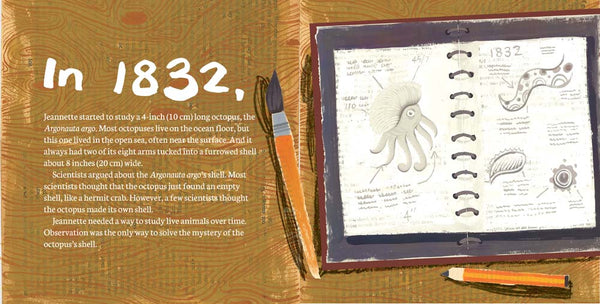 In 1832,
Jeannette started to study a 4-inch (10 cm) long octopus, the
Argonauta argo. Most octopuses live on the ocean floor, but
this one lived in the open sea, often near the surface. And it
always had two of its eight arms tucked into a furrowed shell
about 8 inches (20 cm) wide.
Scientists argued about the Argonauta argo's shell. Most
scientists thought that the octopus just found an empty
shell, like a hermit crab. However, a few scientists thought
the octopus made its own shell.
Jeannette needed a way to study live animals over time.
Observation was the only way to solve the mystery of the
octopus's shell.
1832